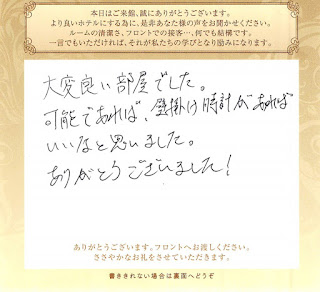 本日はご来館、誠にありがとうございます。
より良いホテルにする為に、是非あなた様の声をお聞かせください。
ルームの清潔さ、フロントでの接客…、何でも結構です。
一言でもいただければ、それが私たちの学びとなり励みになります。
大変良い部屋でした。
可能であれば、壁掛け時計があれば
いいなと思いました。
ありがとうございました!
ありがとうございます。フロントへお渡しください。
ささやかなお礼をさせていただきます。
書ききれない場合は裏面へどうぞ